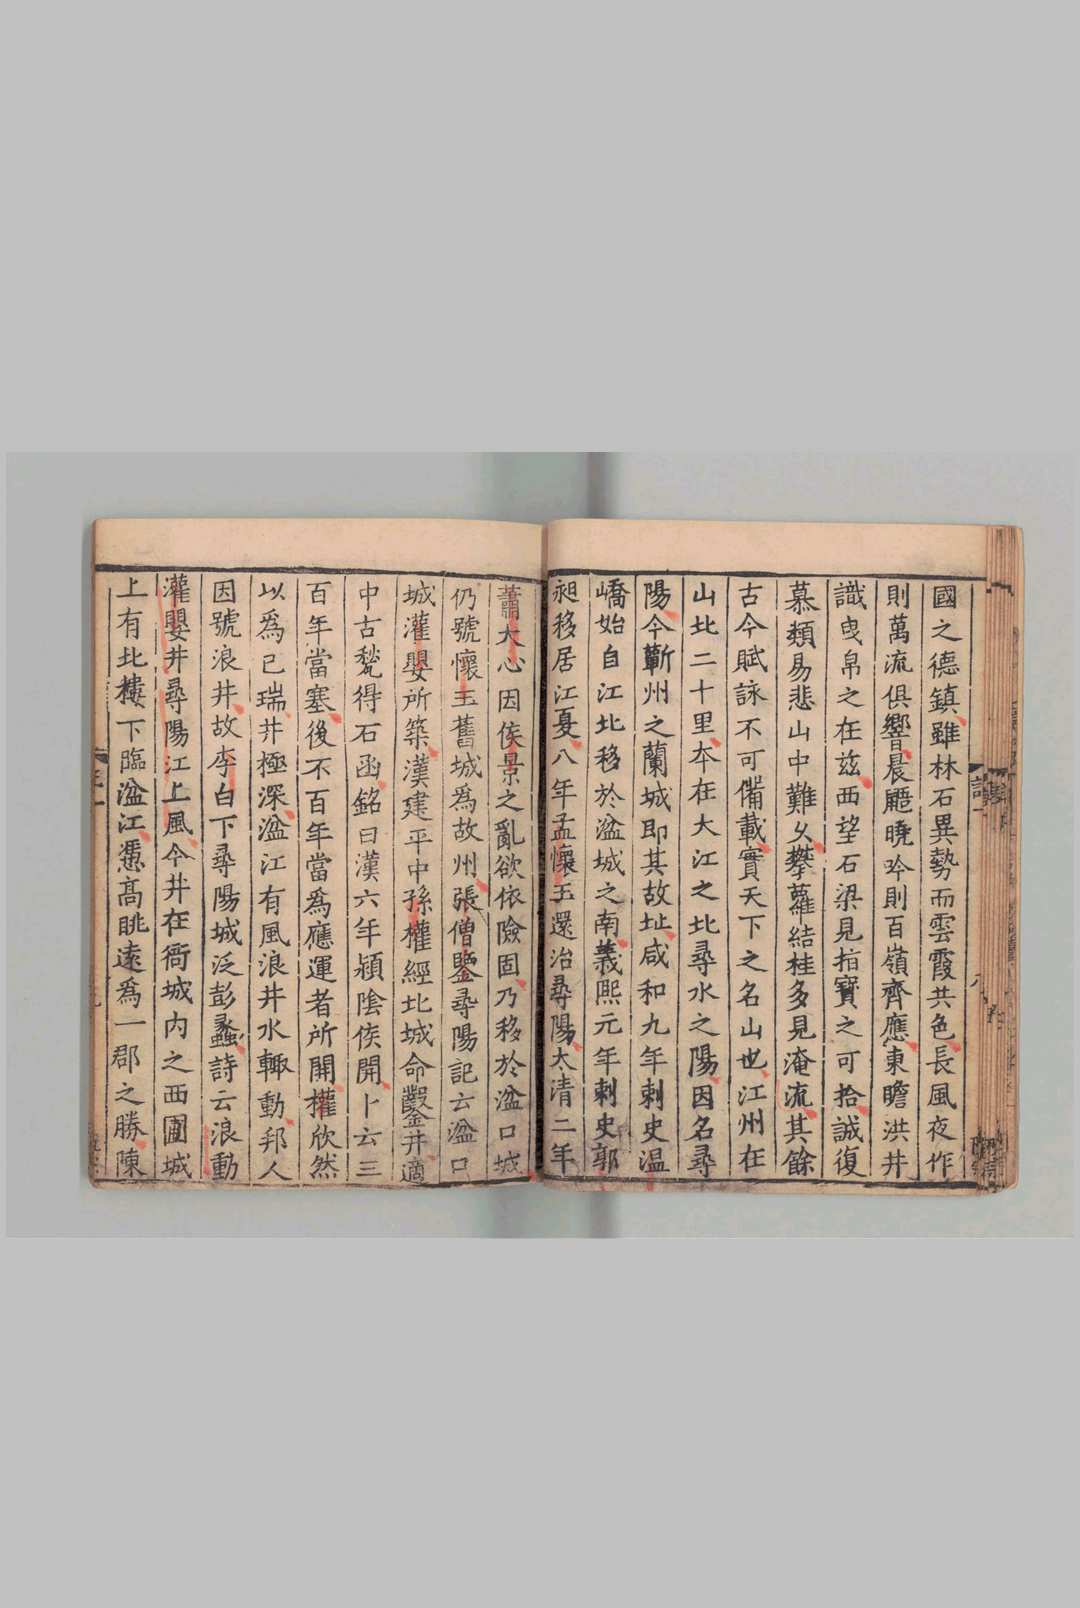 國之德鎮雖林石異勢而雲霞共色長風夜作
則萬流俱響晨鼯曉吟則百嶺齊應東瞻洪井
識曳帛之在兹西望石梁見指寶之可拾誠復
慕類易悲山中難乆攀蘿結桂多見淹流其餘
古今賦詠不可備載實天下之名山也江州在
山北二十里夲在大江之北尋水之陽因名尋
陽今蘄州之蘭城即其故址咸和九年刺史温
嶠始自江北移於湓城之南義熈元年刺史郭
昶移居江夏八年孟懷玉還治尋陽太清二年
蕭大心因侯景之亂欲依險固乃移於湓口城
仍號懷玉舊城為故州張僧鑒尋陽記云湓口
城灌嬰所築漢建平中孫權經北城命鑿井適
中古甃得石函銘曰漢六年潁隂侯開卜云三
百年當塞後不百年當為應運者所開權欣然
以為已瑞井極深湓江有風浪井水輙動邦人
因號浪井故李白下尋陽城泛彭蠡詩云浪動
灌嬰井尋陽江上風今井在衙城内之西圃城
上有北樓下臨湓江憑高眺遠為一郡之勝陳